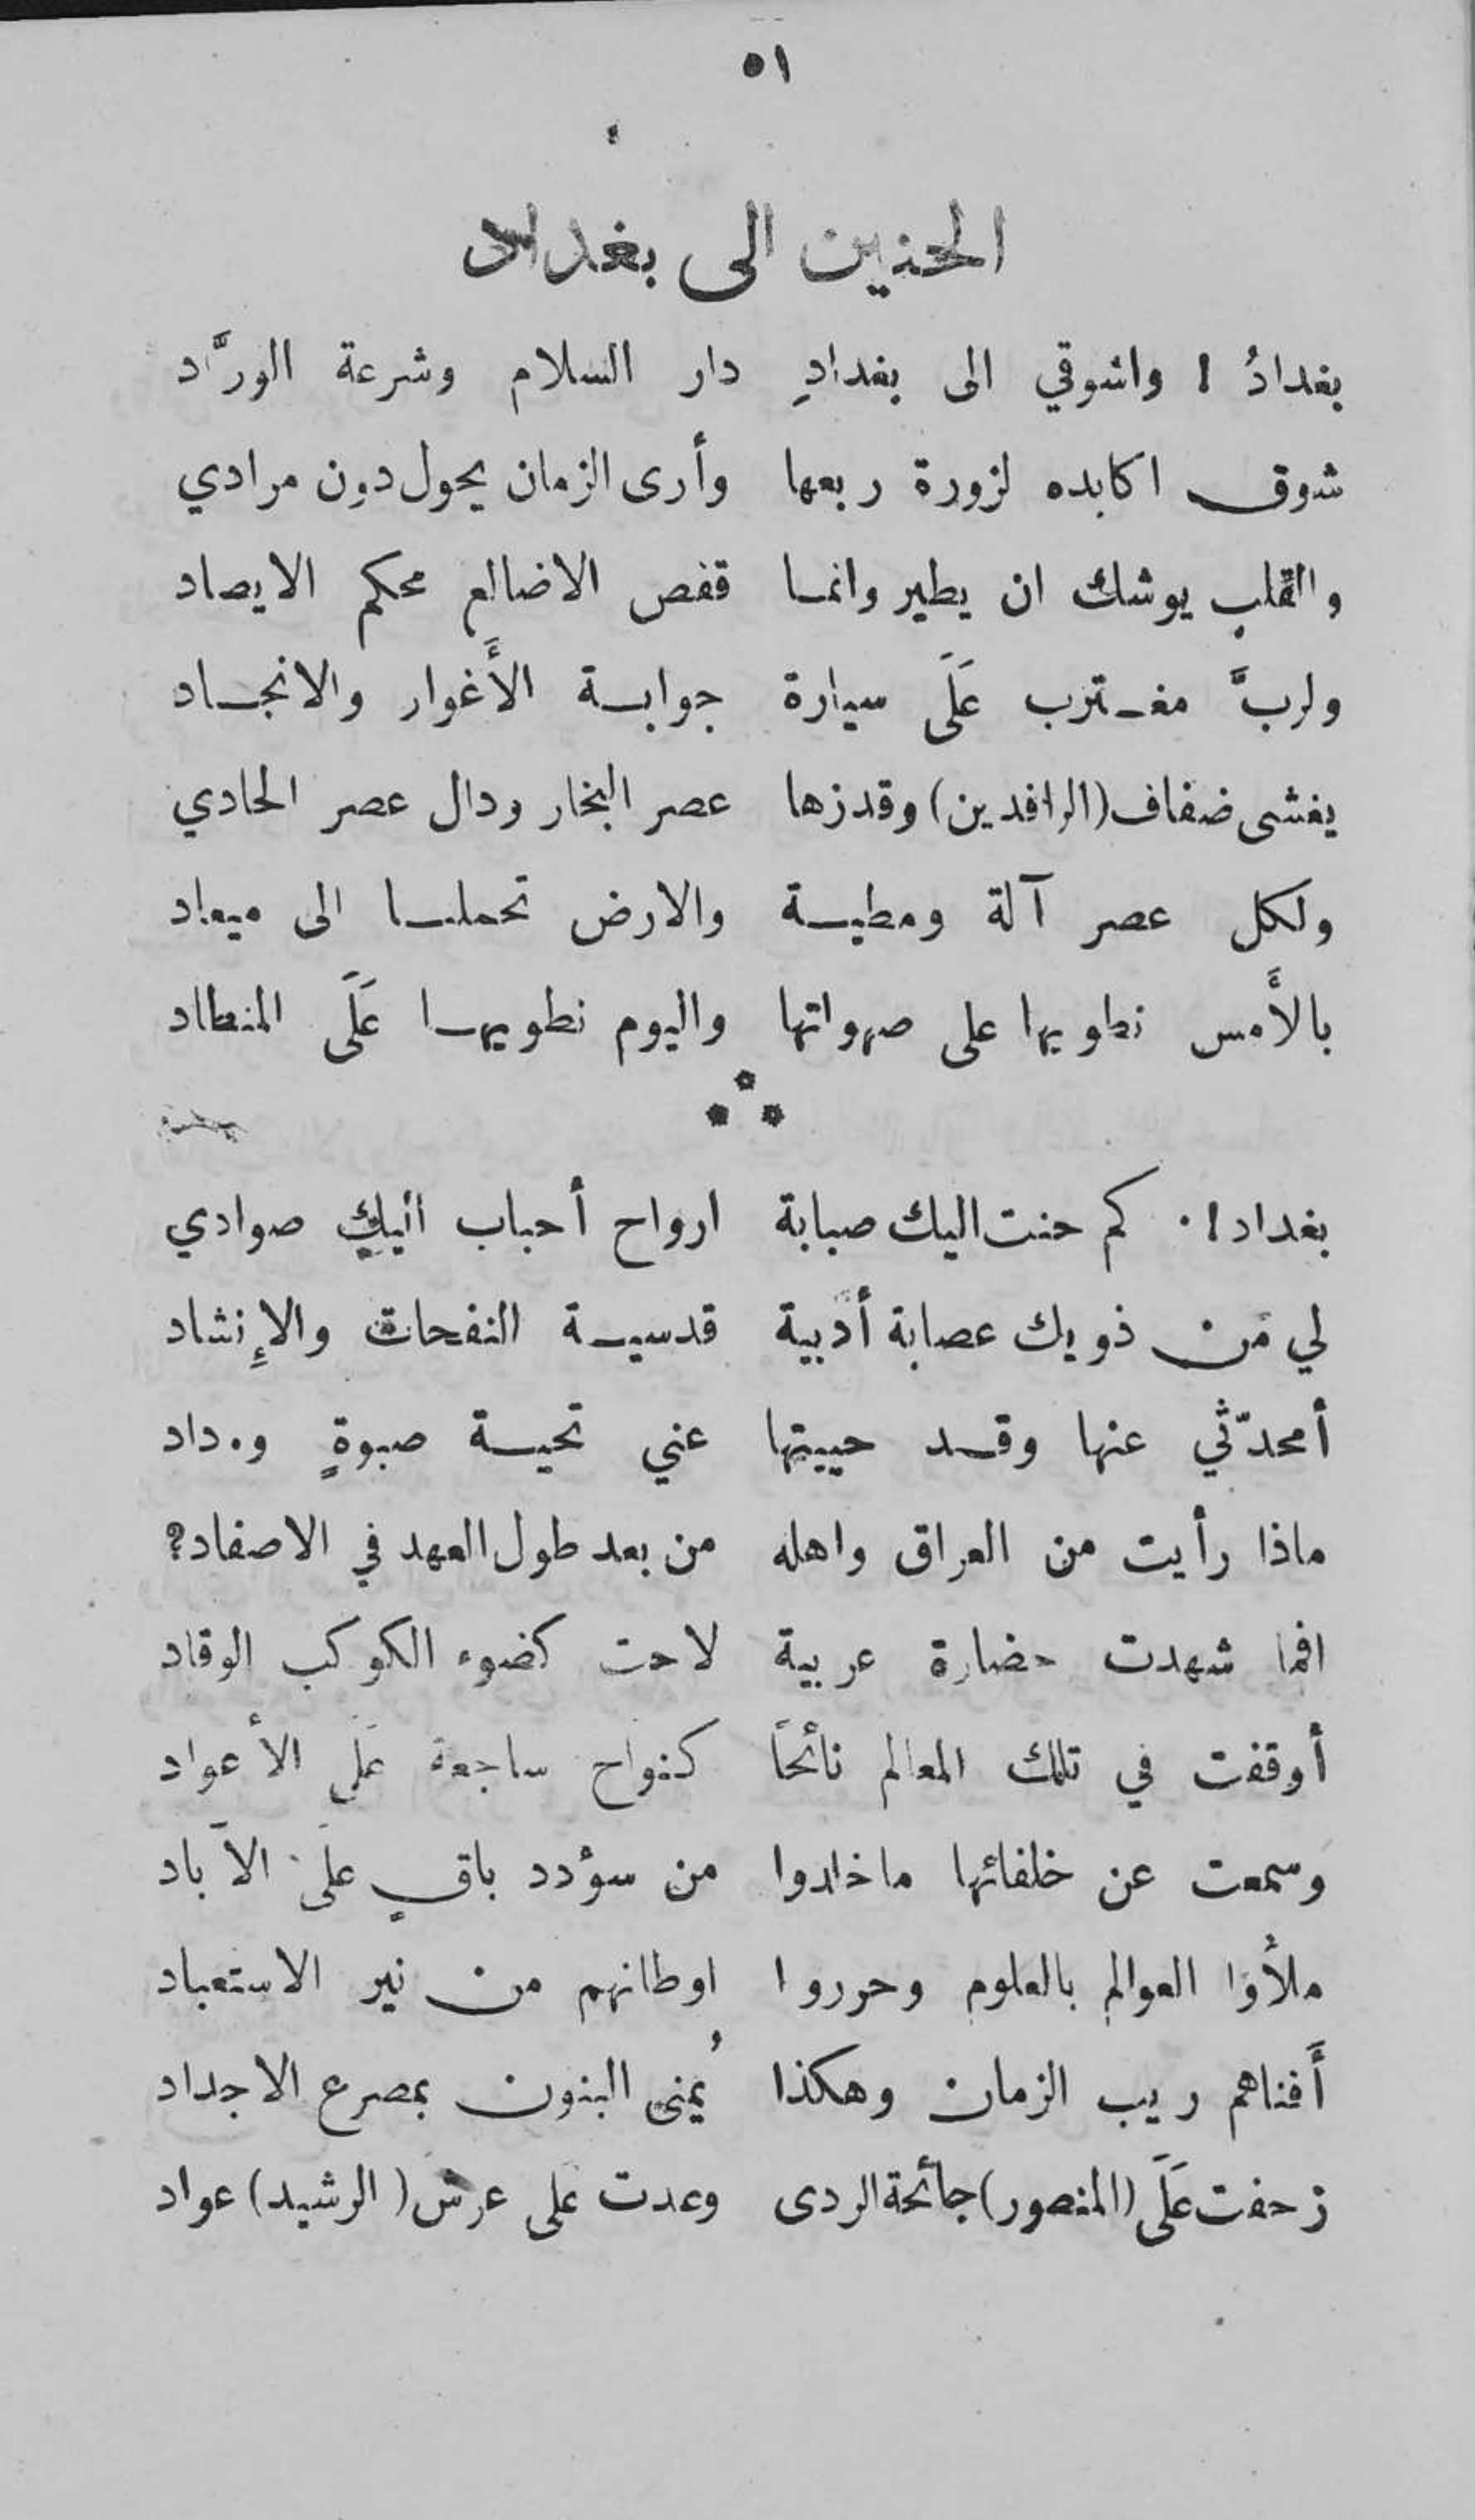 ٥١
الحنين الى بغداد
بغدادُ ! واشوقي الى بغدادِ دار السلام وشرعة الورَّاد
شوق اكابده لزورة ربعها وأرى الزمان يحول دون مرادي
والقلب يوشك ان يطير وانما قفص الاضالع محكم الايصاد
ولربَّ مغترب عَلَى سيارة جوابة الأَغوار والانجاد
يغشى ضفاف (الرافدين) وقد زها عصر البخار ودال عصر الحادي
ولكل عصر آلة ومطية والارض تحملنا الى ميعاد
بالأَمس نطويها على صهواتها واليوم نطويها عَلَى المنطاد
بغداد ! . كم حنت اليك صبابة ارواح أحباب اليكِ صوادي
لي من ذويك عصابة أدبية قدسية النفحات والإِنشاد
أمحدّثي عنها وقد حييتها عني تحية صبوةٍ وداد
ماذا رأيت من العراق واهله من بعد طول العهد في الاصفاد؟
افما شهدت حضارة عربية لاحت كضوء الكوكب الوقاد
أوقفت في تلك المعالم نائحاً كنواح ساجعة عَلى الأعواد
وسمعت عن خلفائها ما خلدوا من سؤدد باقٍ علَى الآباد
ملأوا العوالم بالعلوم وحرروا اوطانهم من نير الاستعباد
أَفناهم ريب الزمان وهكذا يُمنى البنون بمصرع الاجداد
زحفت عَلَى (المنصور) جائحة الردى وعدت عَلى عرش (الرشيد) عواد